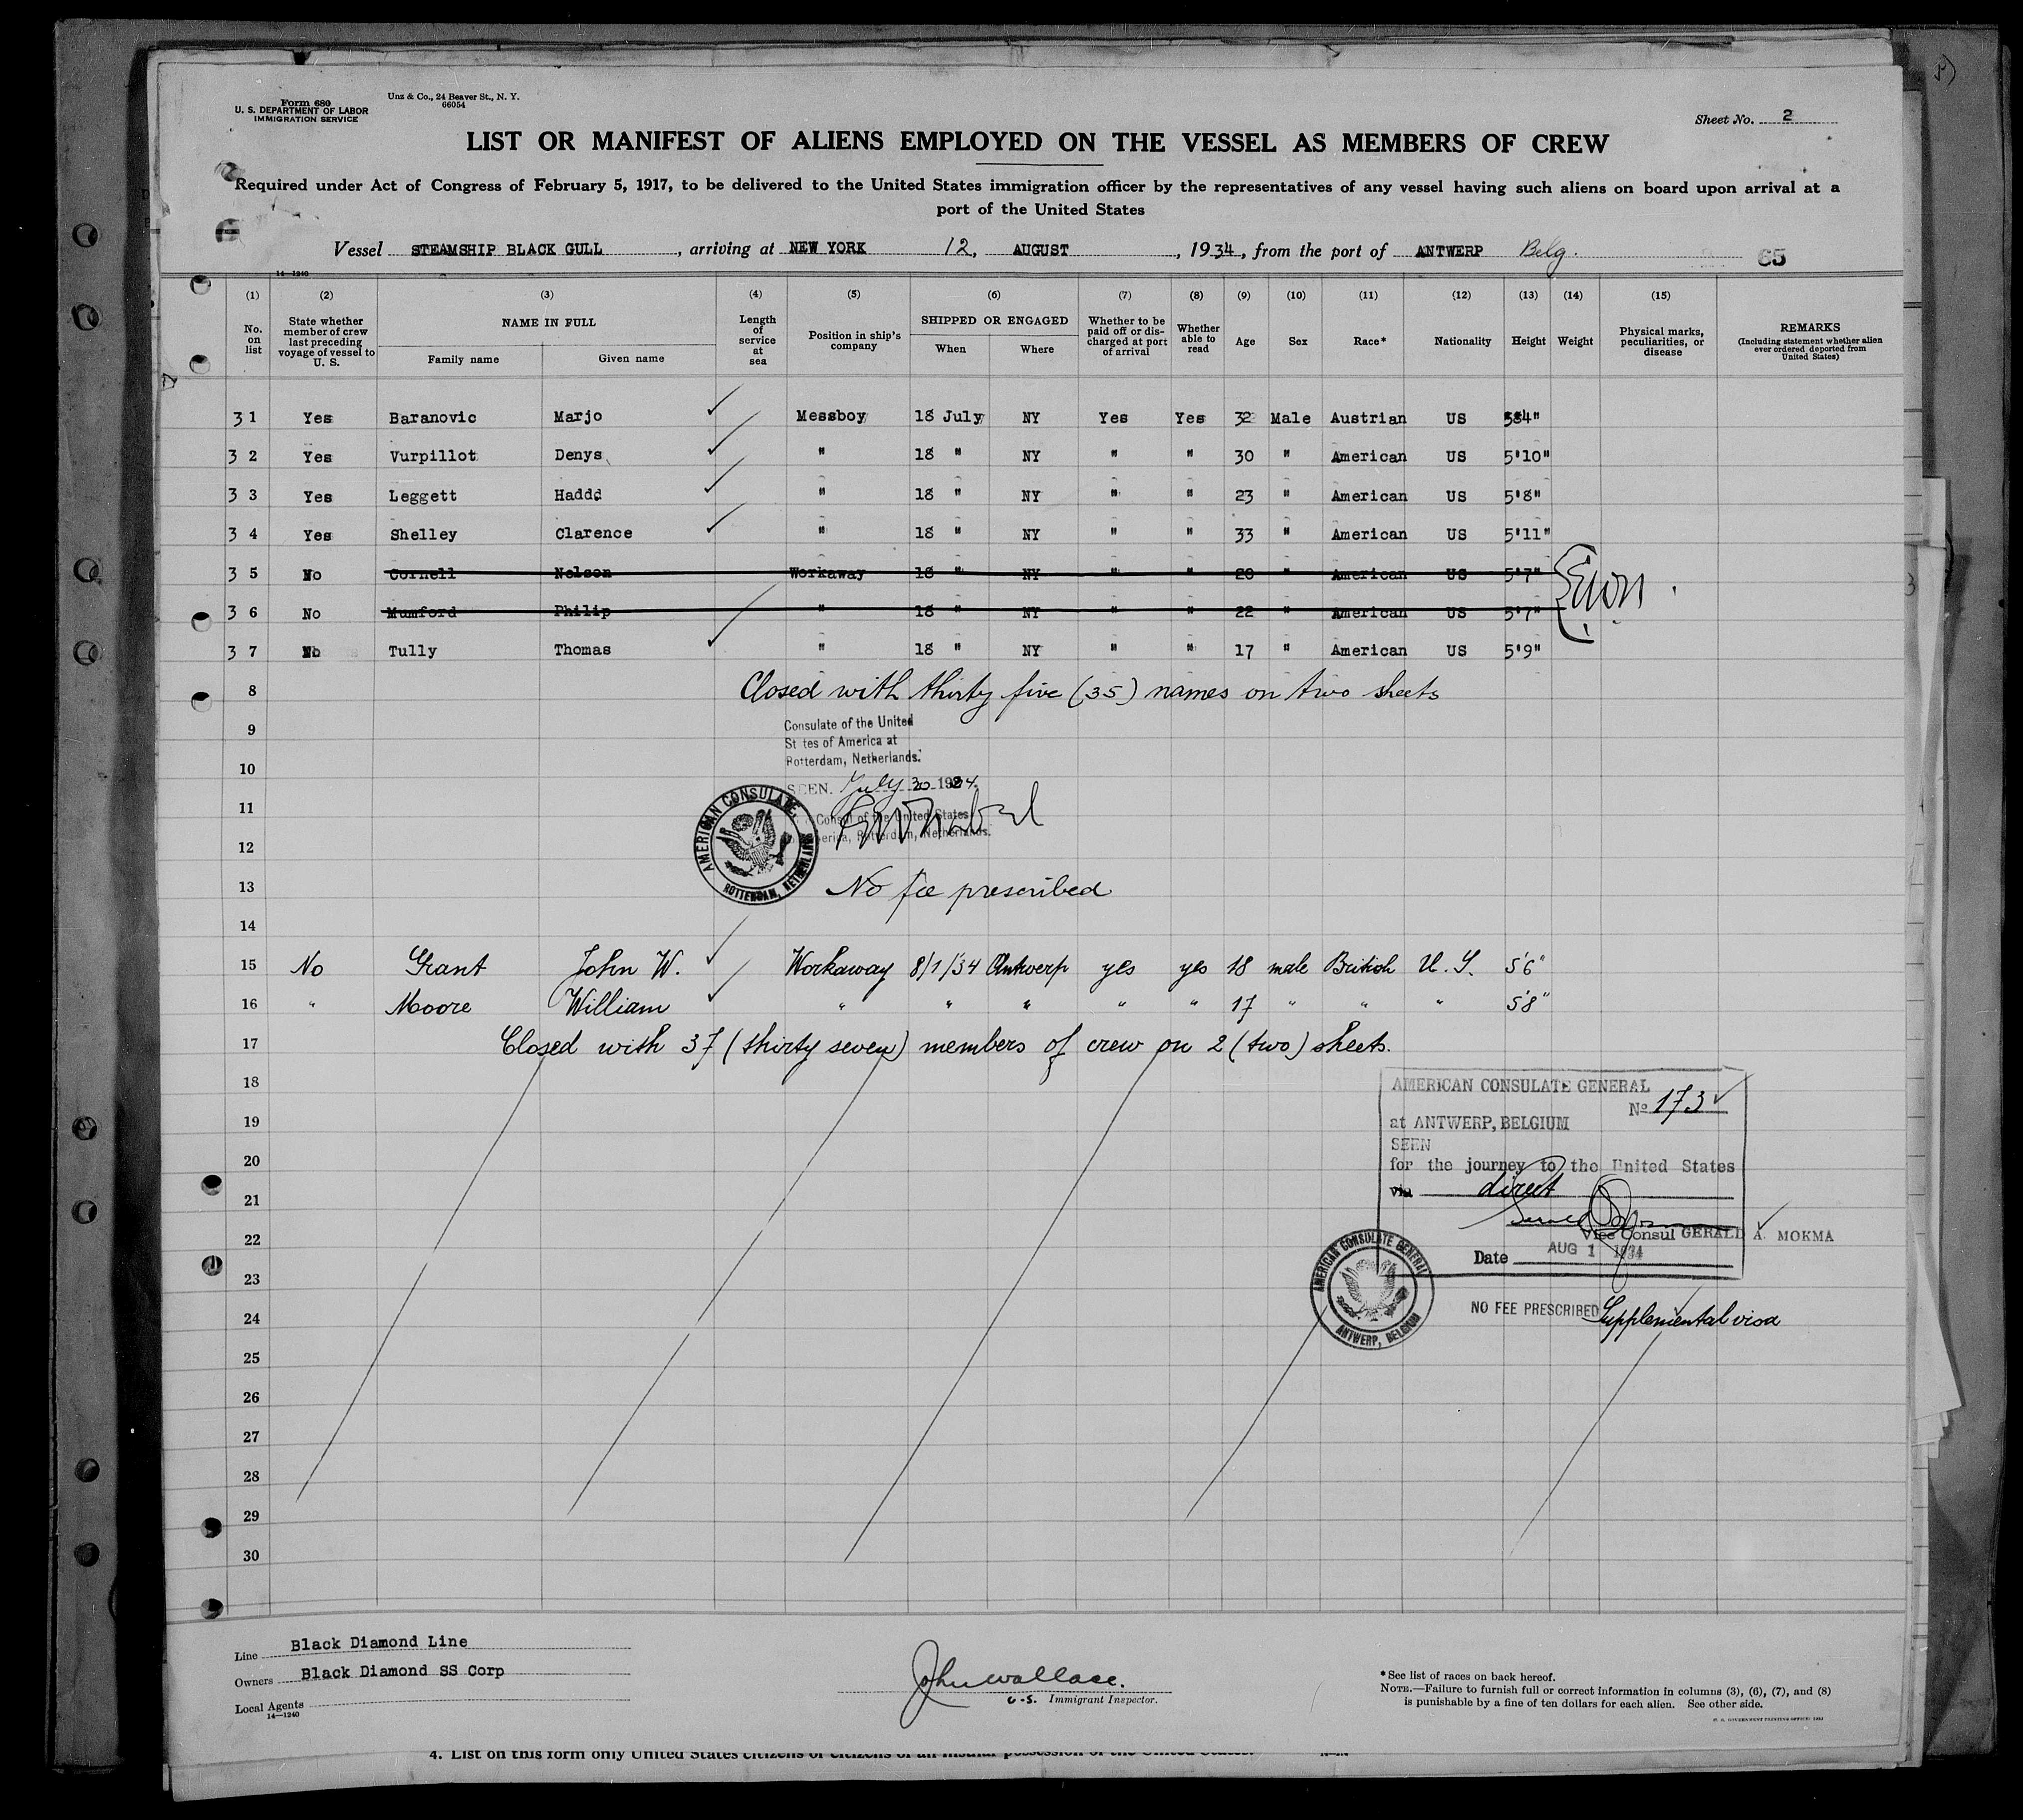 Form 680
U. S. DEPARTMENT OF LABOR
IMMIGRATION SERVICE
Unz & Co., 24 Beaver St., N. Y.
66054
Sheet No. 2
LIST OR MANIFEST OF ALIENS EMPLOYED ON THE VESSEL AS MEMBERS OF CREW
Required under Act of Congress of February 5, 1917, to be delivered to the United States immigration officer by the representatives of any vessel having such aliens on board upon arrival at a
port of the United States
Vessel STEAMSHIP BLACK GULL, arriving at NEW YORK 12, AUGUST, 1934, from the port of ANTWERP Belg. 65
14—1240
(1) (2) (3) (4) (5) (6) (7) (8) (9) (10) (11) (12) (13) (14) (15)
No. on list
State whether member of crew last preceding voyage of vessel to U. S.
NAME IN FULL
Family name
Given name
Length of service at sea
Position in ship's company
SHIPPED OR ENGAGED
When
Where
Whether to be paid off or discharged at port of arrival
Whether able to read
Age
Sex
Race*
Nationality
Height
Weight
Physical marks, peculiarities, or disease
REMARKS
(Including statement whether alien ever ordered deported from United States)
31 Yes Baranovic Marjo Messboy 18 July NY Yes Yes 32 Male Austrian US 5'4"
32 Yes Vurpillot Denys " 18 " NY " " 30 " American US 5'10"
33 Yes Leggett Haddd " 18 " NY " " 23 " American US 5'8"
34 Yes Shelley Clarence " 18 " NY " " 33 " American US 5'11"
35 No Cornell Nelson Workaway 18 " NY " " 20 " American US 5'7"
36 No Mumford Philip " 18 " NY " " 22 " American US 5'7"
37 No Tully Thomas " 18 " NY " " 17 " American US 5'9"
8 Closed with thirty five (35) names on two sheets
9 Consulate of the United
States of America at
10 Rotterdam, Netherlands.
SEEN. July 30 1934.
11 Consul of the United States
12 America, Rotterdam, Netherlands.
AMERICAN CONSULATE, ROTTERDAM, NETHERLAND
13 No fee prescribed
14
15 No Grant John W. Workaway 8/1/34 Antwerp yes yes 18 male British U.S. 5'6"
16 " Moore William " " " " " 17 " " " 5'8"
17 Closed with 37 (thirty seven) members of crew on 2 (two) sheets.
18
AMERICAN CONSULATE GENERAL
No 173
19
at ANTWERP, BELGIUM
SEEN
20
for the journey to the United States
21
via direct
22
Vice Consul GERALD A. MOKMA
Date AUG 1 1934
23
AMERICAN CONSULATE GENERAL ANTWERP, BELGIUM
24
NO FEE PRESCRIBED Supplemental visa
25
26
27
28
29
30
Line Black Diamond Line
Owners Black Diamond SS Corp
Local Agents
14—1240
John Wallace.
U.S. Immigrant Inspector.
*See list of races on back hereof.
NOTE.—Failure to furnish full or correct information in columns (3), (6), (7), and (8)
is punishable by a fine of ten dollars for each alien. See other side.
4. List on this form only United States citizens or citizens of an insular possession of the United States.